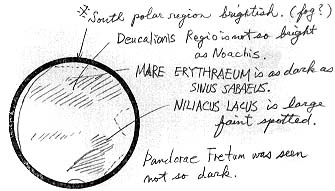 South polar region brightish. (fog?)
Deucalionis Regio is not so bright
as Noachis.
MARE ERYTHRAEUM is as dark as
SINUS SABAEUS.
NILIACUS LACUS is large
faint spotted.
Pandorae Fretum was seen
not so dark.